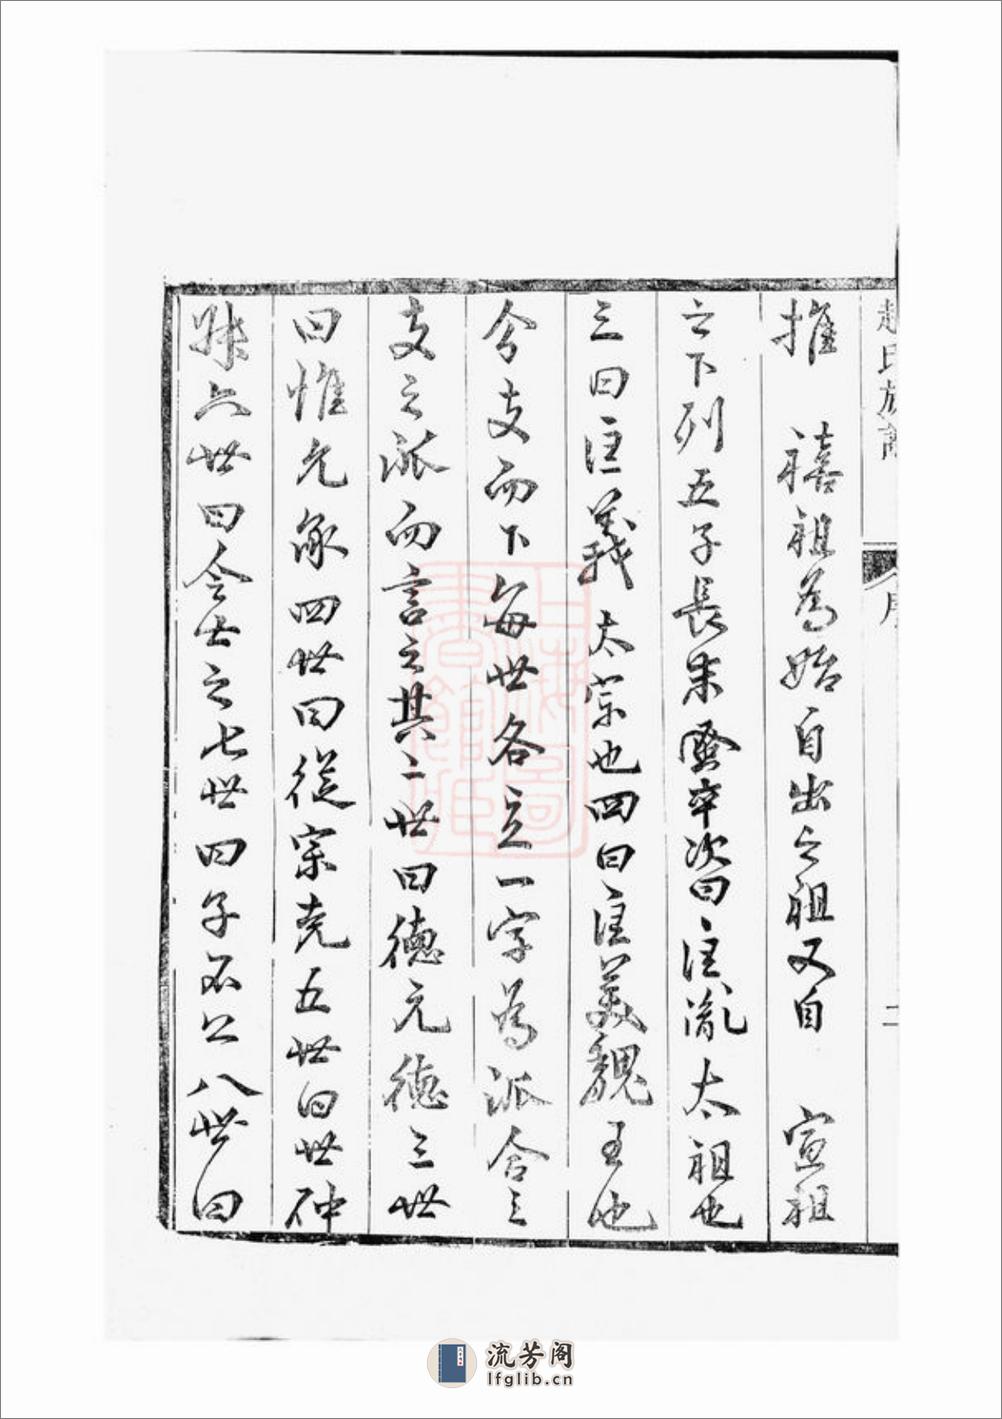 趙氏族譜 序 二
推 禧祖為始自出之祖又自 宣祖
之下列五子長卒次曰匡胤太祖也
三曰匡義太宗也四曰匡美魏王也
分支而下每世各立一字為派合三
支之派而言之其二世曰德元德三世
曰惟允承四世曰從宗克五世曰世仲
叔六世曰令士之七世曰子不公八世曰
上海圖書館藏
流芳阁
lfglib.cn